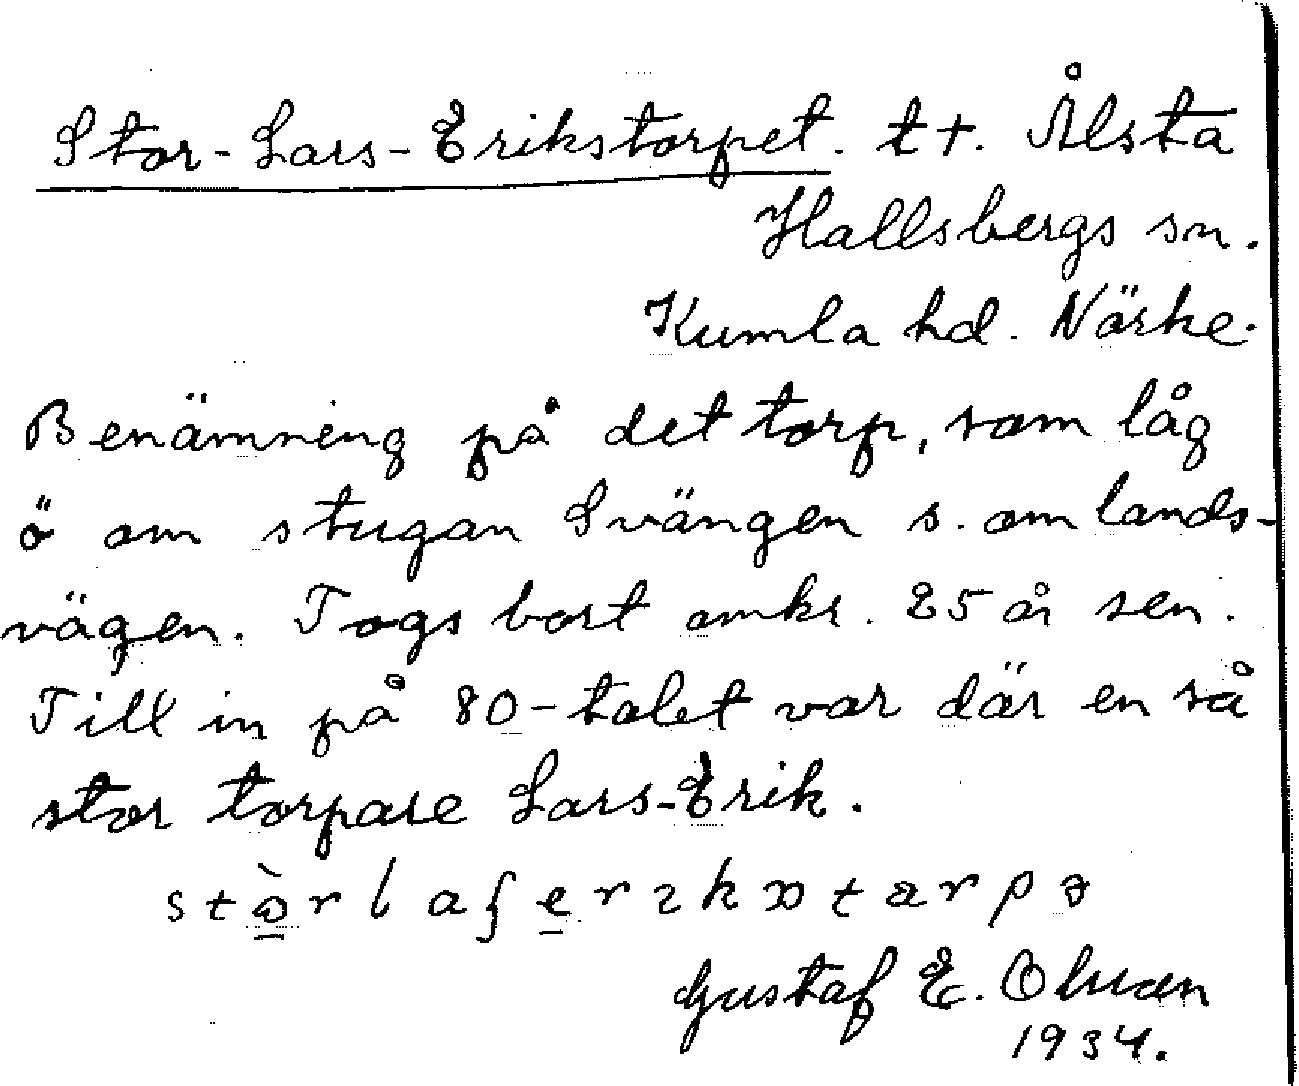 Stor-Lars-Erikstorpet. tt. Ålsta
Hallsbergs sn.
Kumla hd. Närke.
Benämning på det torp, som låg
ö om stugan Svängen s. om lands-
vägen. Togs bort omkr. 25 år sen.
Till in på 80-talet var där en så
stor torpare Lars-Erik.
Gustaf E.
1934.